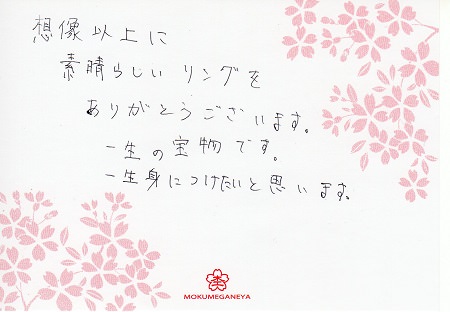 想像以上に
素晴らしい リングを
ありがとうございます。
一生の宝物です。
一生身につけたいと思います。
MOKUMEGANEYA